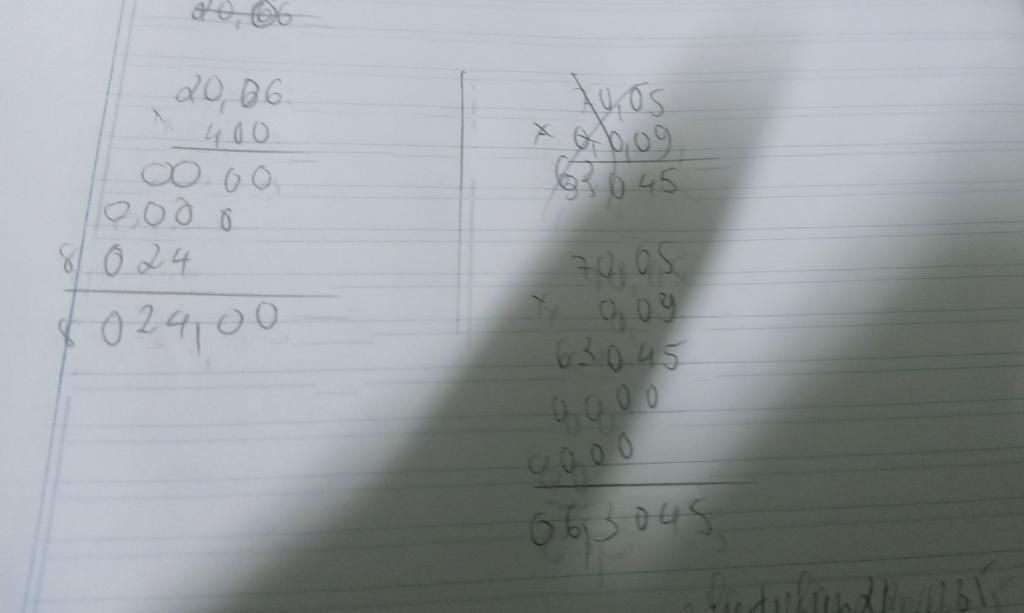 20,06
20,06
× 400
00 00
0,00 0
8 024
8 024,00
70,05
× 0,0,09
63 045
70,05
× 0,09
63045
0,000
0000
06,3045